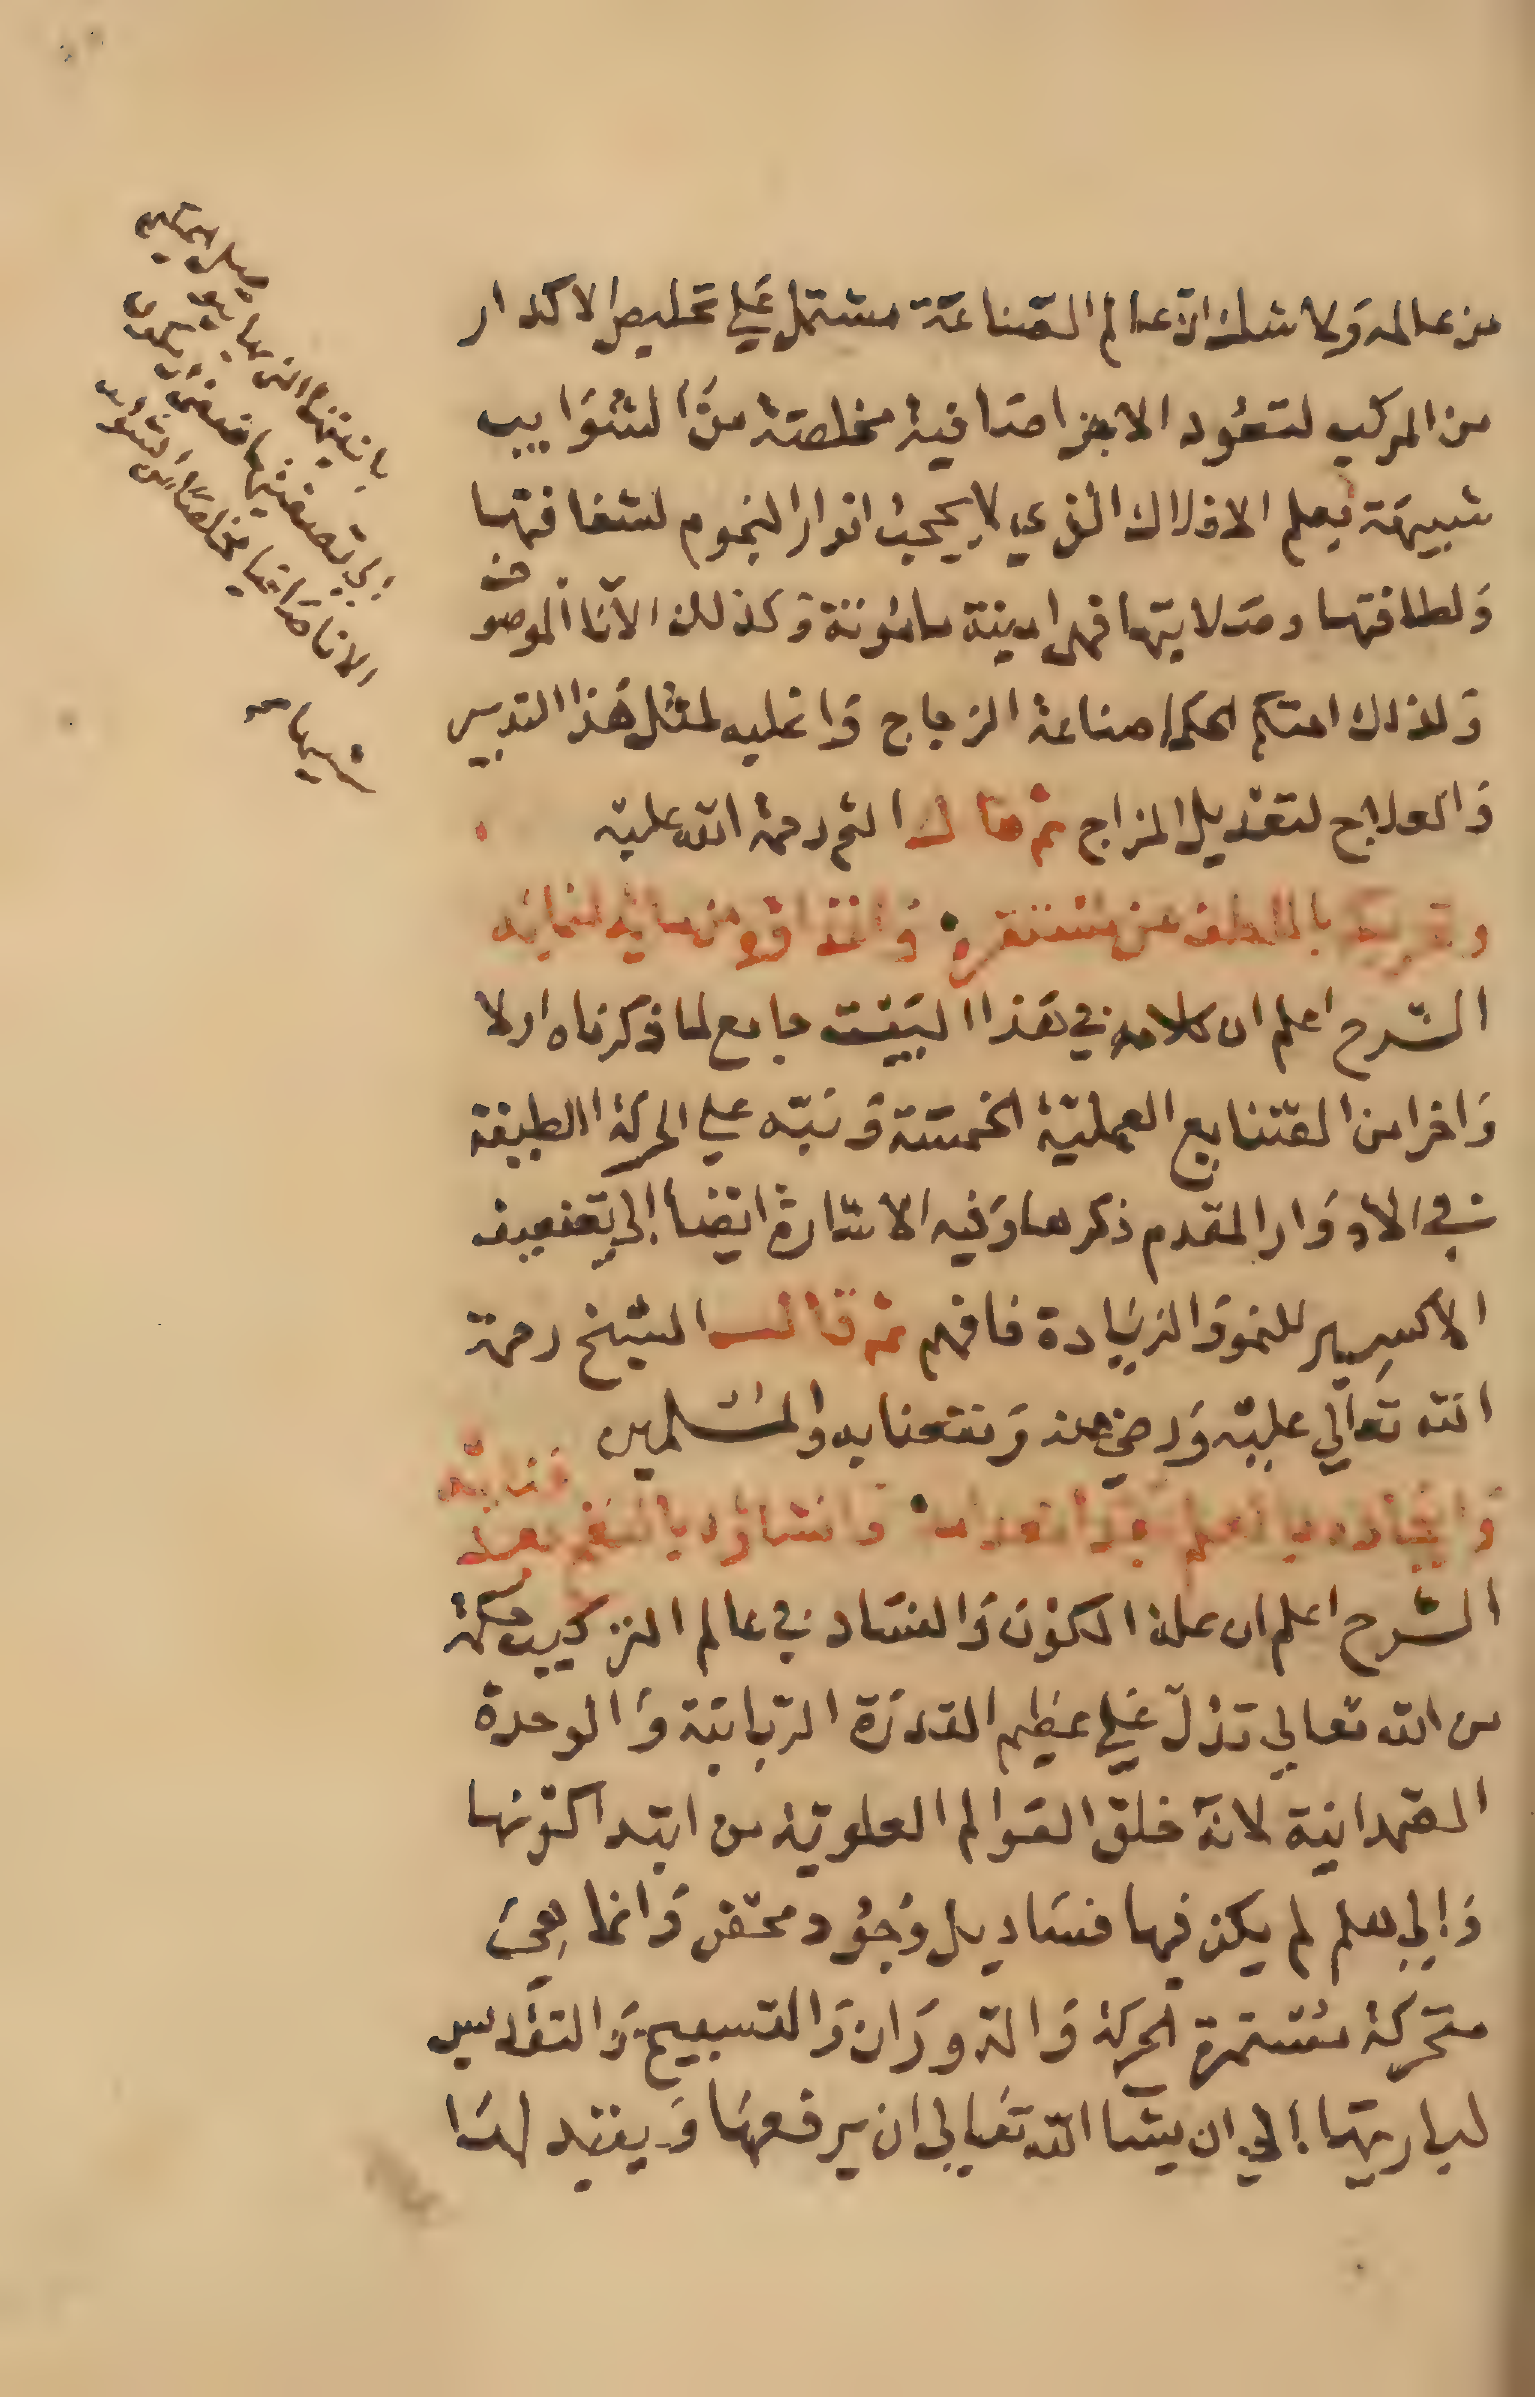 من عالمه ولا شك ان عالم الصناعة مشتمل علي تخليص الاكدار
من المركب لتعود الاجزا صافية مخلصة من الشوايب
شبيهة بعلم الافلاك الذي لا يحجب انوار النجوم لشفافتها
ولطافتها وصلابتها فهي امينة مامونة وكذلك الانا الموصوف
ولذلك احتكم الحكما صناعة الزجاج واعليه لمثل هذا التدبير
والعلاج لتعديل المزاج ثم قال الشم رحمة الله عليه
وتحريكه باللطف عن مستقره وانفاقه من ماله لنمايه
الشرح اعلم ان كلامه في هذا البيت جامع لما ذكرناه اولا
واخرا من الصنايع العملية الخمسة ونبه علي الحركة الطبيعة
في الادوار المقدم ذكرها وفيه الاشارة ايضا الي تضعيف
الاكسير للنمو والزيادة فافهم ثم قال الشيخ رحمة
الله تعالي عليه ورضي عنه ونفعنا به والمسلمين
وايجاده بالعلم وانشاؤه بالنفخ بعد
الشرح اعلم ان علة الكون والفساد في عالم التركيب حكمة
من الله تعالي تدل علي عظيم القدرة الربانية والوحدة
الصمدانية لانه خلق العوالم العلوية من ابتدا كونها
والي هلم لم يكن فيها فساد بل وجود محض وانما هي
متحركة مستمرة الحركة والدوران والتسبيح والتقديس
لباريها الي ان يشا الله تعالي ان يرفعها ويفنيد لها
الانا صافيا مخلصا من الشوايب
شيها